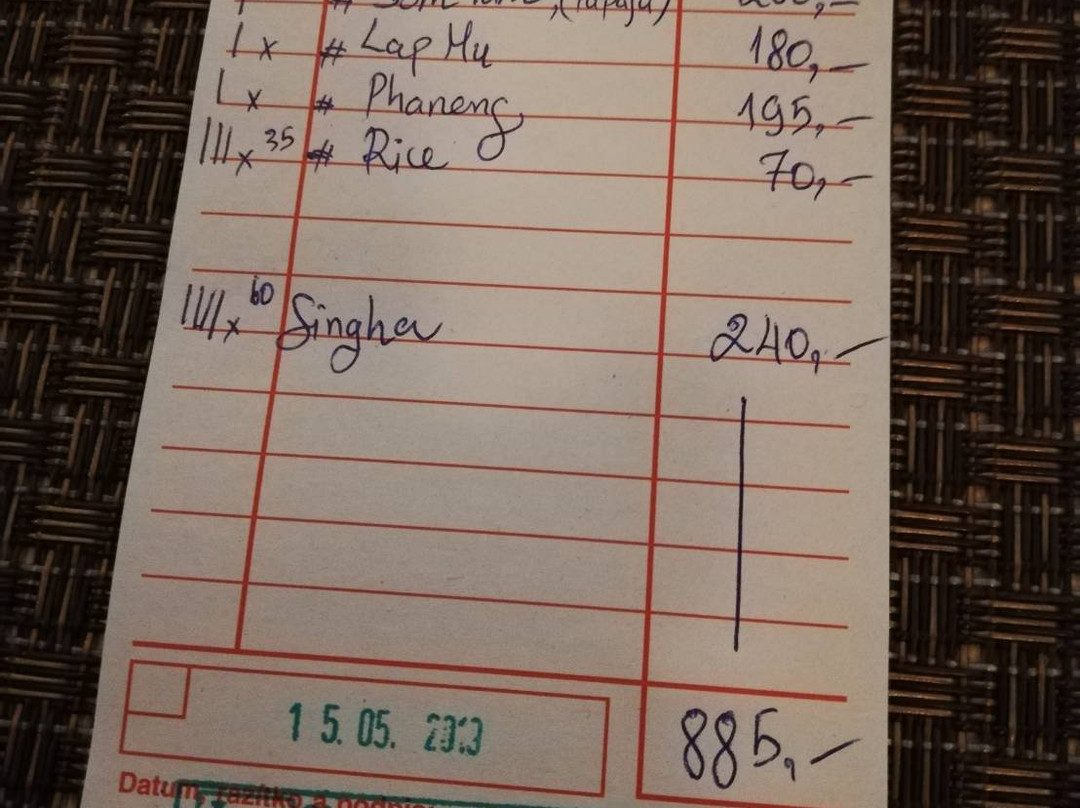 1 x # (Papaja) 200,-
1 x # Lap Mu 180,-
1 x # Phaneng 195,-
III x 35 # Rice 70,-
IIII x 60 Singha 240,-
15.05.
885,-
Datum, razítko a podpis